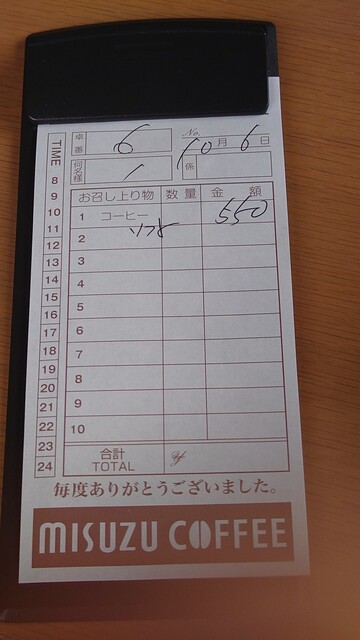 TIME 8 9 10 11 12 13 14 15 16 17 18 19 20 21 22 23 24
卓番 6 No.
10月6日
何名様 1 係
お召し上り物 数量 金額
1 コーヒー 550
2 ソフト
3
4
5
6
7
8
9
10
合計 TOTAL ¥
毎度ありがとうございました。
MISUZU COFFEE